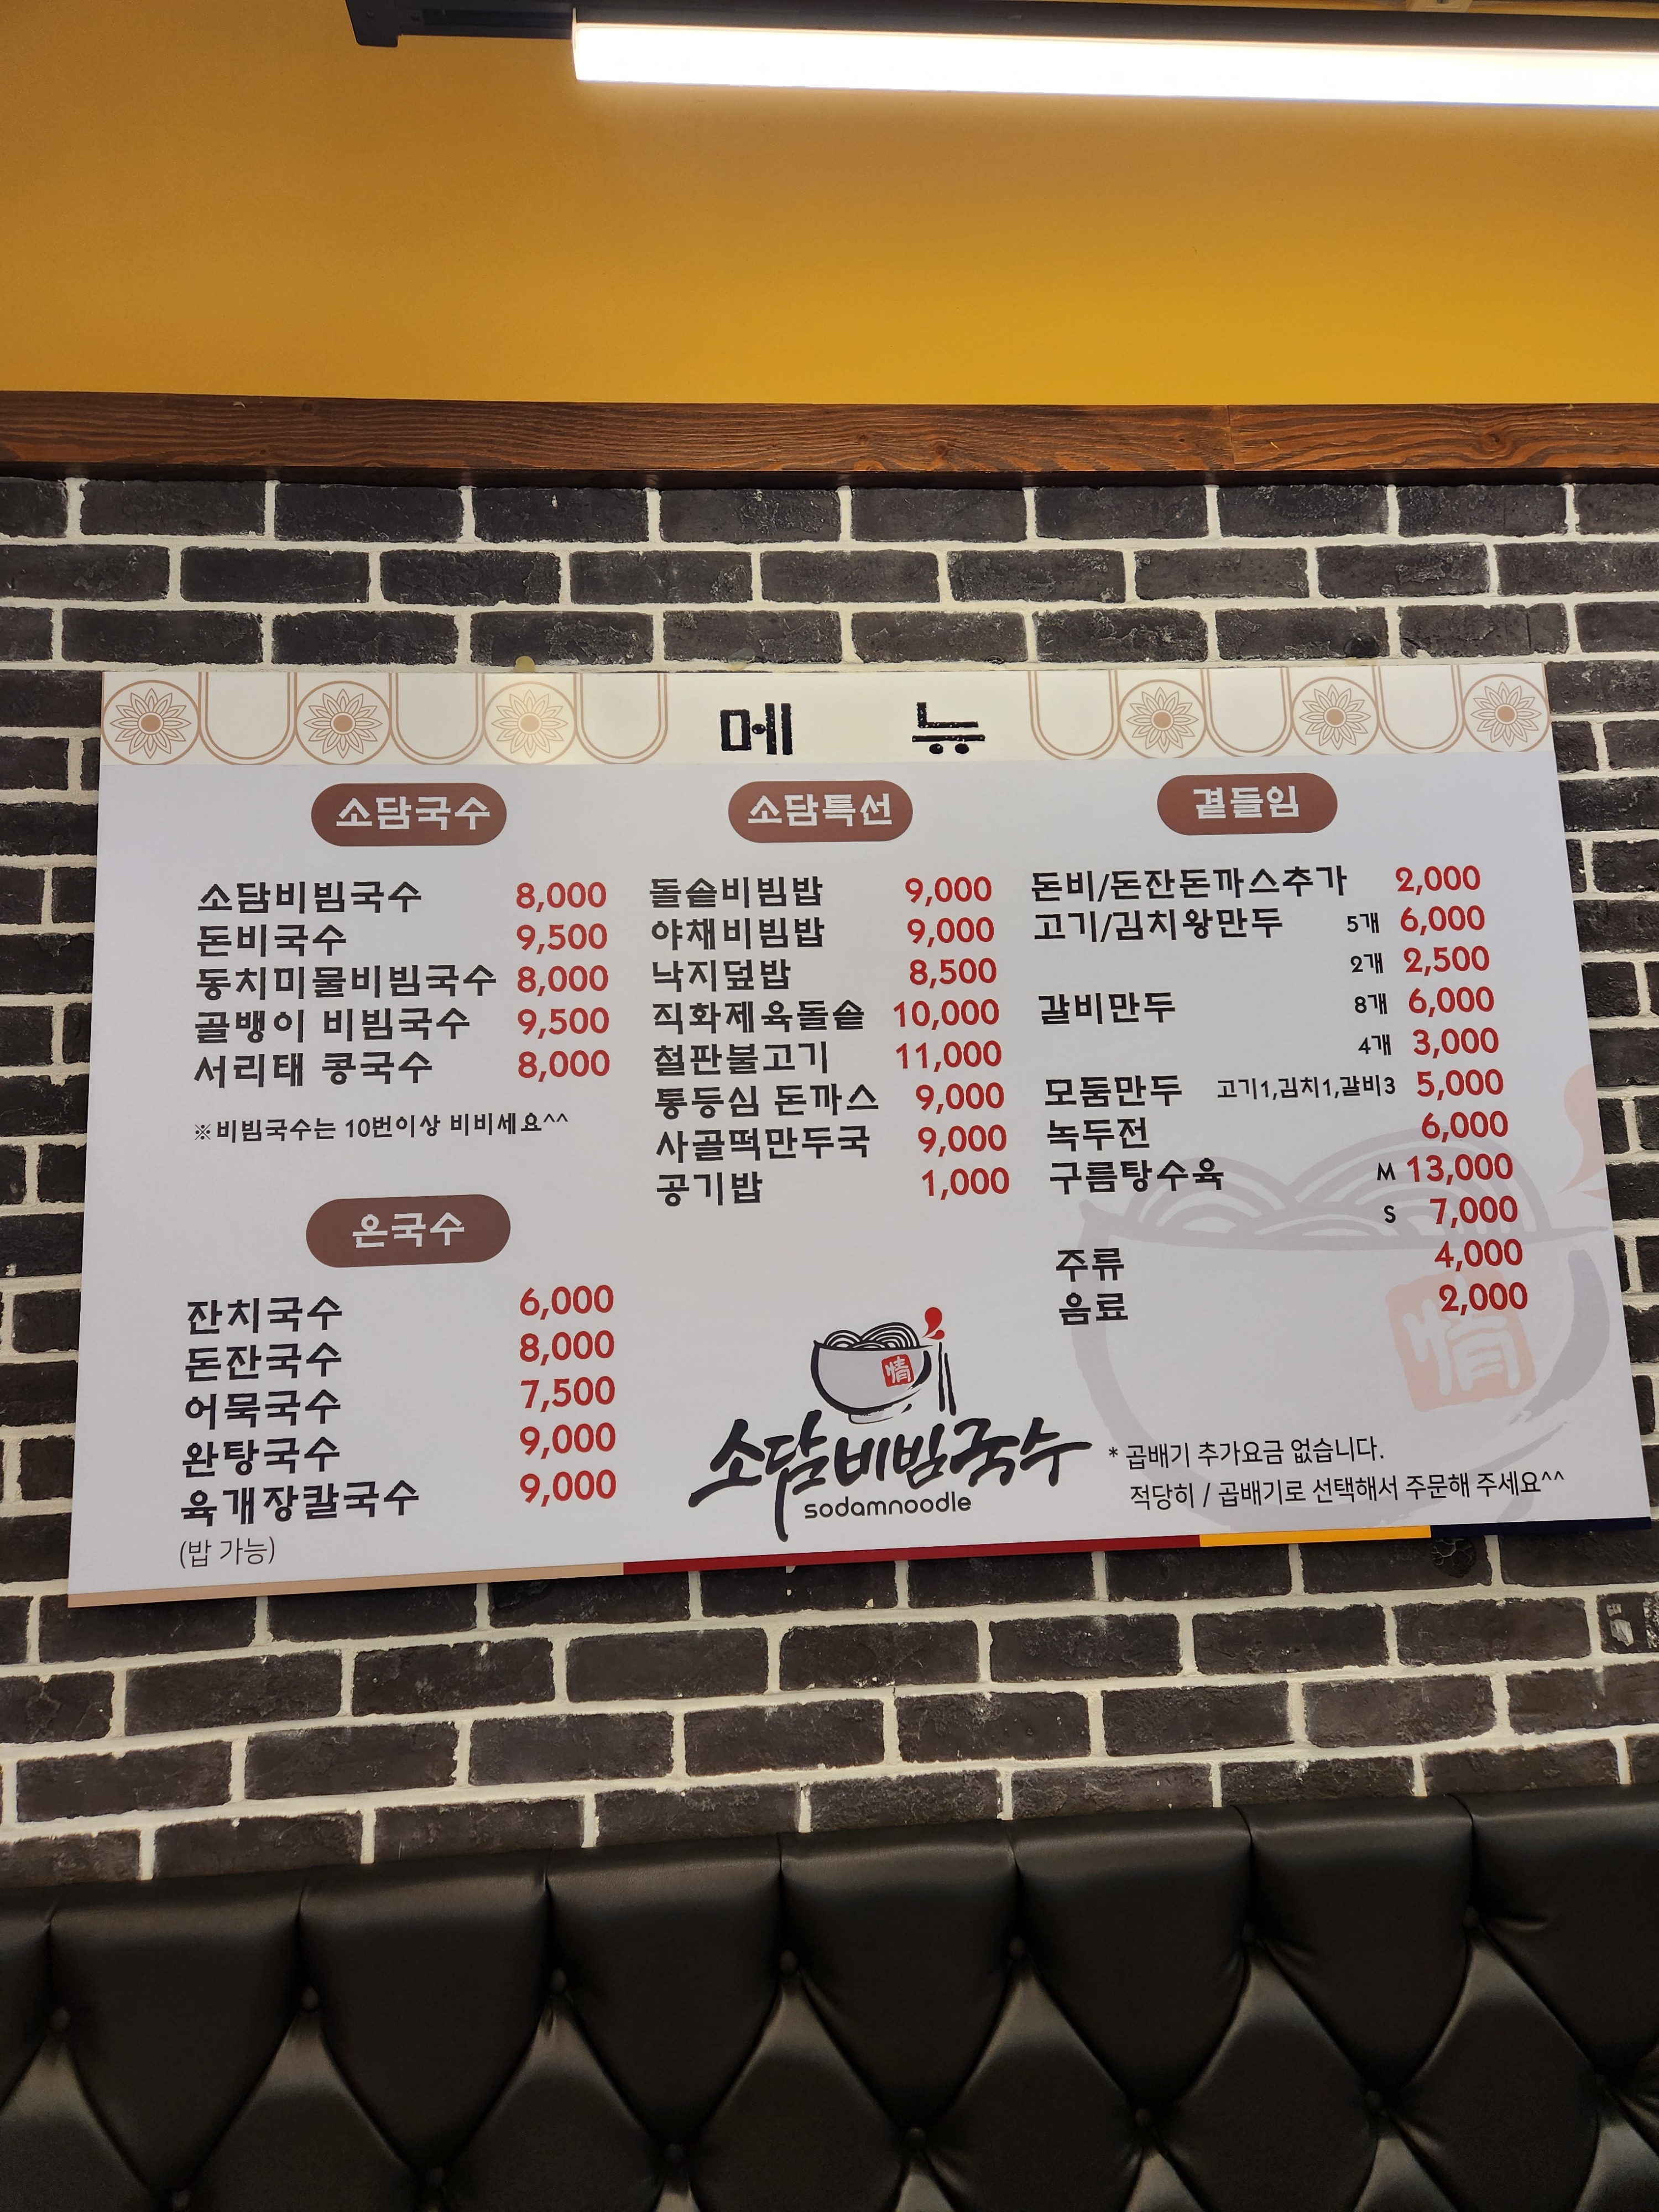 메 뉴
소담국수
소담비빔국수 8,000
돈비국수 9,500
동치미물비빔국수 8,000
골뱅이 비빔국수 9,500
서리태 콩국수 8,000
※비빔국수는 10번이상 비비세요^^
온국수
잔치국수 6,000
돈잔국수 8,000
어묵국수 7,500
완탕국수 9,000
육개장칼국수 9,000
(밥 가능)
소담특선
돌솥비빔밥 9,000
야채비빔밥 9,000
낙지덮밥 8,500
직화제육돌솥 10,000
철판불고기 11,000
통등심 돈까스 9,000
사골떡만두국 9,000
공기밥 1,000
곁들임
돈비/돈잔돈까스추가 2,000
고기/김치왕만두 5개 6,000
2개 2,500
갈비만두 8개 6,000
4개 3,000
모둠만두 고기1,김치1,갈비3 5,000
녹두전 6,000
구름탕수육 M 13,000
S 7,000
주류 4,000
음료 2,000
情
情
소담비빔국수
sodamnoodle
* 곱배기 추가요금 없습니다.
적당히 / 곱배기로 선택해서 주문해 주세요^^